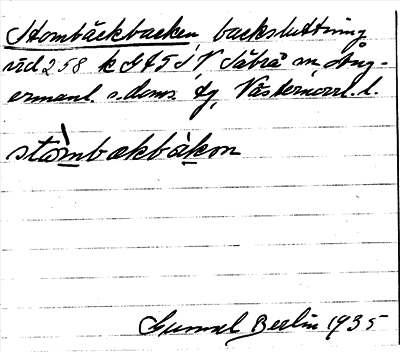 Stombäckbacken backsluttning
vid 258 k G A 5 i N Säbrå sn, Ång-
ermanl. s. doms. fg, Västernorrl. l.
stòmbækbàkon
Gunnel Beelin 1935